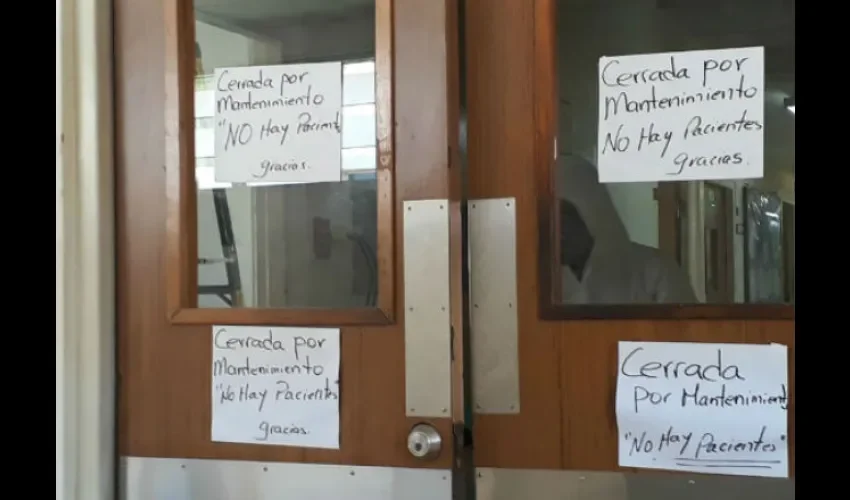 Cerrada por
Mantenimiento
"NO Hay Pacient
gracias.
Cerrada por
Mantenimiento
No Hay Pacientes
gracias.
Cerrada por
Mantenimiento
"No Hay Pacientes"
gracias.
Cerrada
por Mantenimient
"No Hay Pacientes"